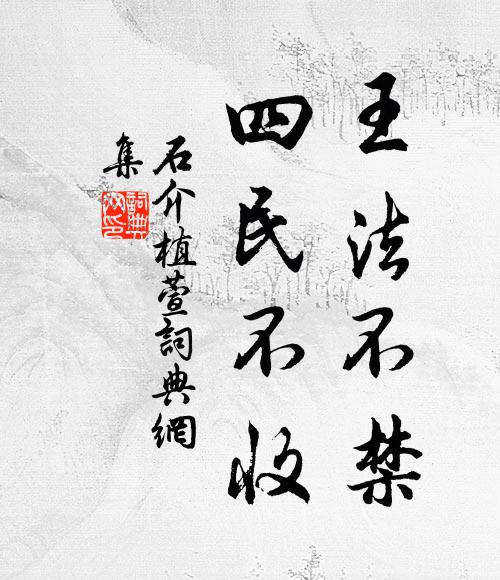 王法不禁
四民不收
石介植萱詞典網
集
詞典網印